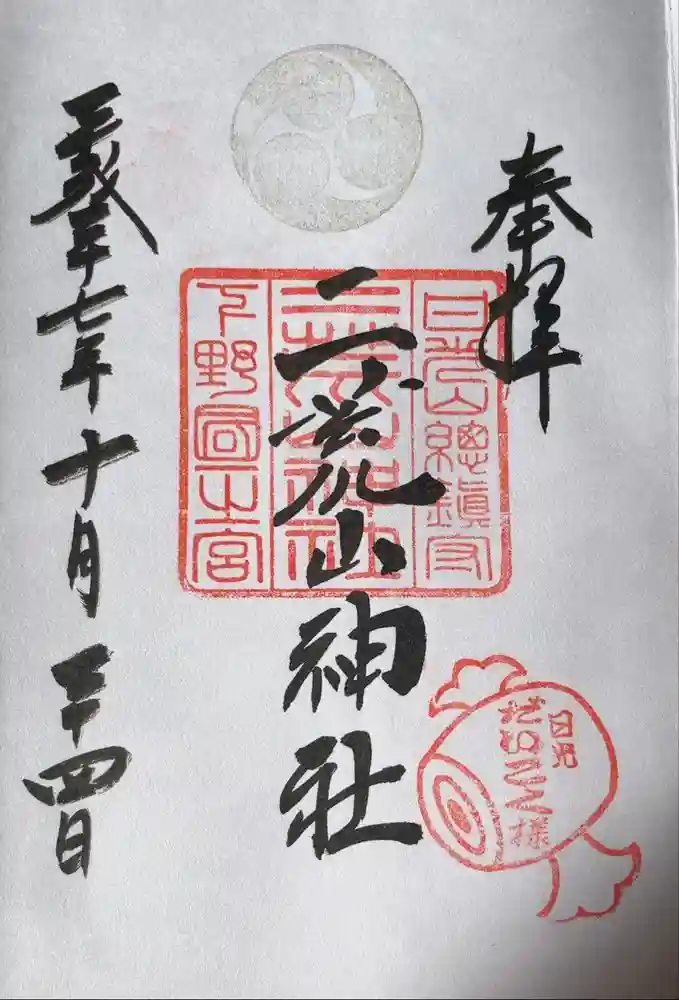 奉拝
日光山總鎮守
二荒山神社
二荒山神社
下野國一之宮
平成二十七年十月二十四日
日光
だいこく様